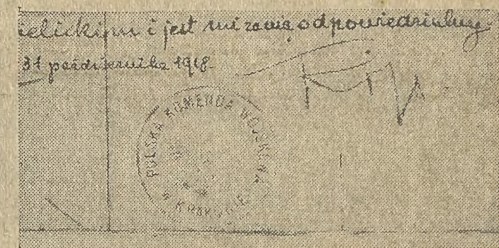 ielickim i jest mi za nią odpowiedzialny.
31 października 1918.
POLSKA KOMENDA WOJSKOWA
W KRAKOWIE